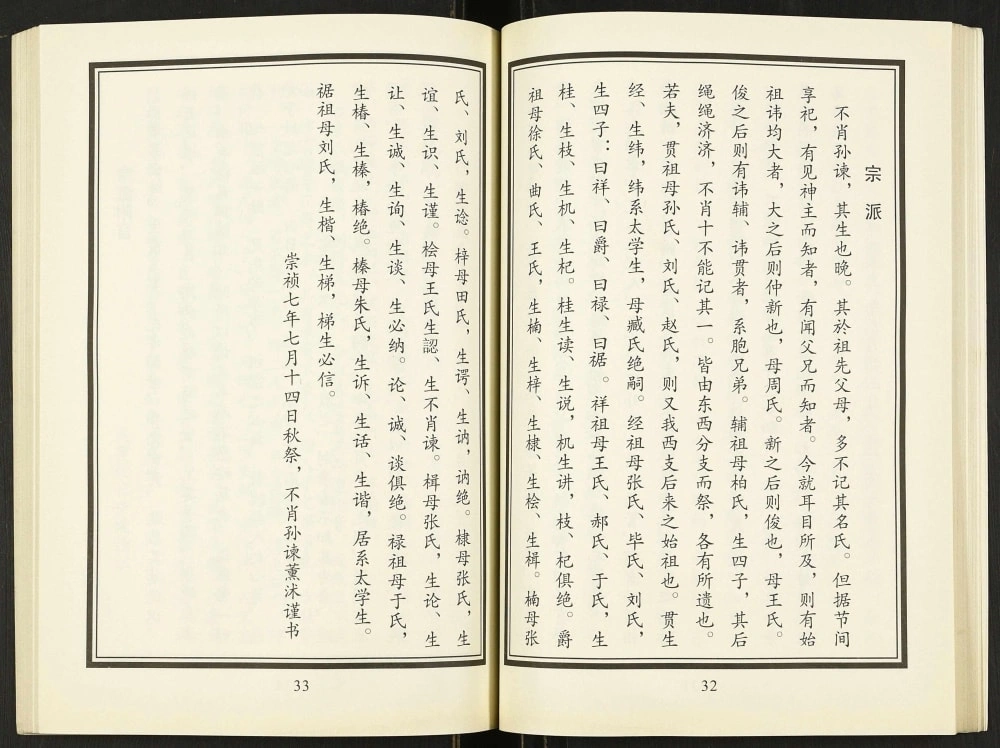 宗派
不肖孙谏，其生也晚。其於祖先父母，多不记其名氏。但据节间
享祀，有见神主而知者，有闻父兄而知者。今就耳目所及，则有始
祖讳均大者，大之后则仲新也，母周氏。新之后则俊也，母王氏。
俊之后则有讳辅、讳贯者，系胞兄弟。辅祖母柏氏，生四子，其后
绳绳济济，不肖十不能记其一。皆由东西分支而祭，各有所遗也。
若夫，贯祖母孙氏、刘氏、赵氏，则又我西支后来之始祖也。贯生
经、生纬，纬系太学生，母臧氏绝嗣。经祖母张氏、毕氏、刘氏，
生四子：曰祥、曰爵、曰禄、曰裾。祥祖母王氏、郝氏、于氏，生
桂、生枝、生机、生杞。桂生读、生说，机生讲，枝、杞俱绝。爵
祖母徐氏、曲氏、王氏，生楠、生梓、生棣、生桧、生楫。楠母张
32
氏、刘氏，生谂。梓母田氏，生谔、生讷，讷绝。棣母张氏，生
谊、生识、生谨。桧母王氏生認、生不肖谏。楫母张氏，生论、生
让、生诚、生询、生谈、生必纳。论、诚、谈俱绝。禄祖母于氏，
生椿、生榛，椿绝。榛母朱氏，生诉、生话、生谐，居系太学生。
裾祖母刘氏，生楷、生梯，梯生必信。
崇祯七年七月十四日秋祭，不肖孙谏薰沐谨书
33